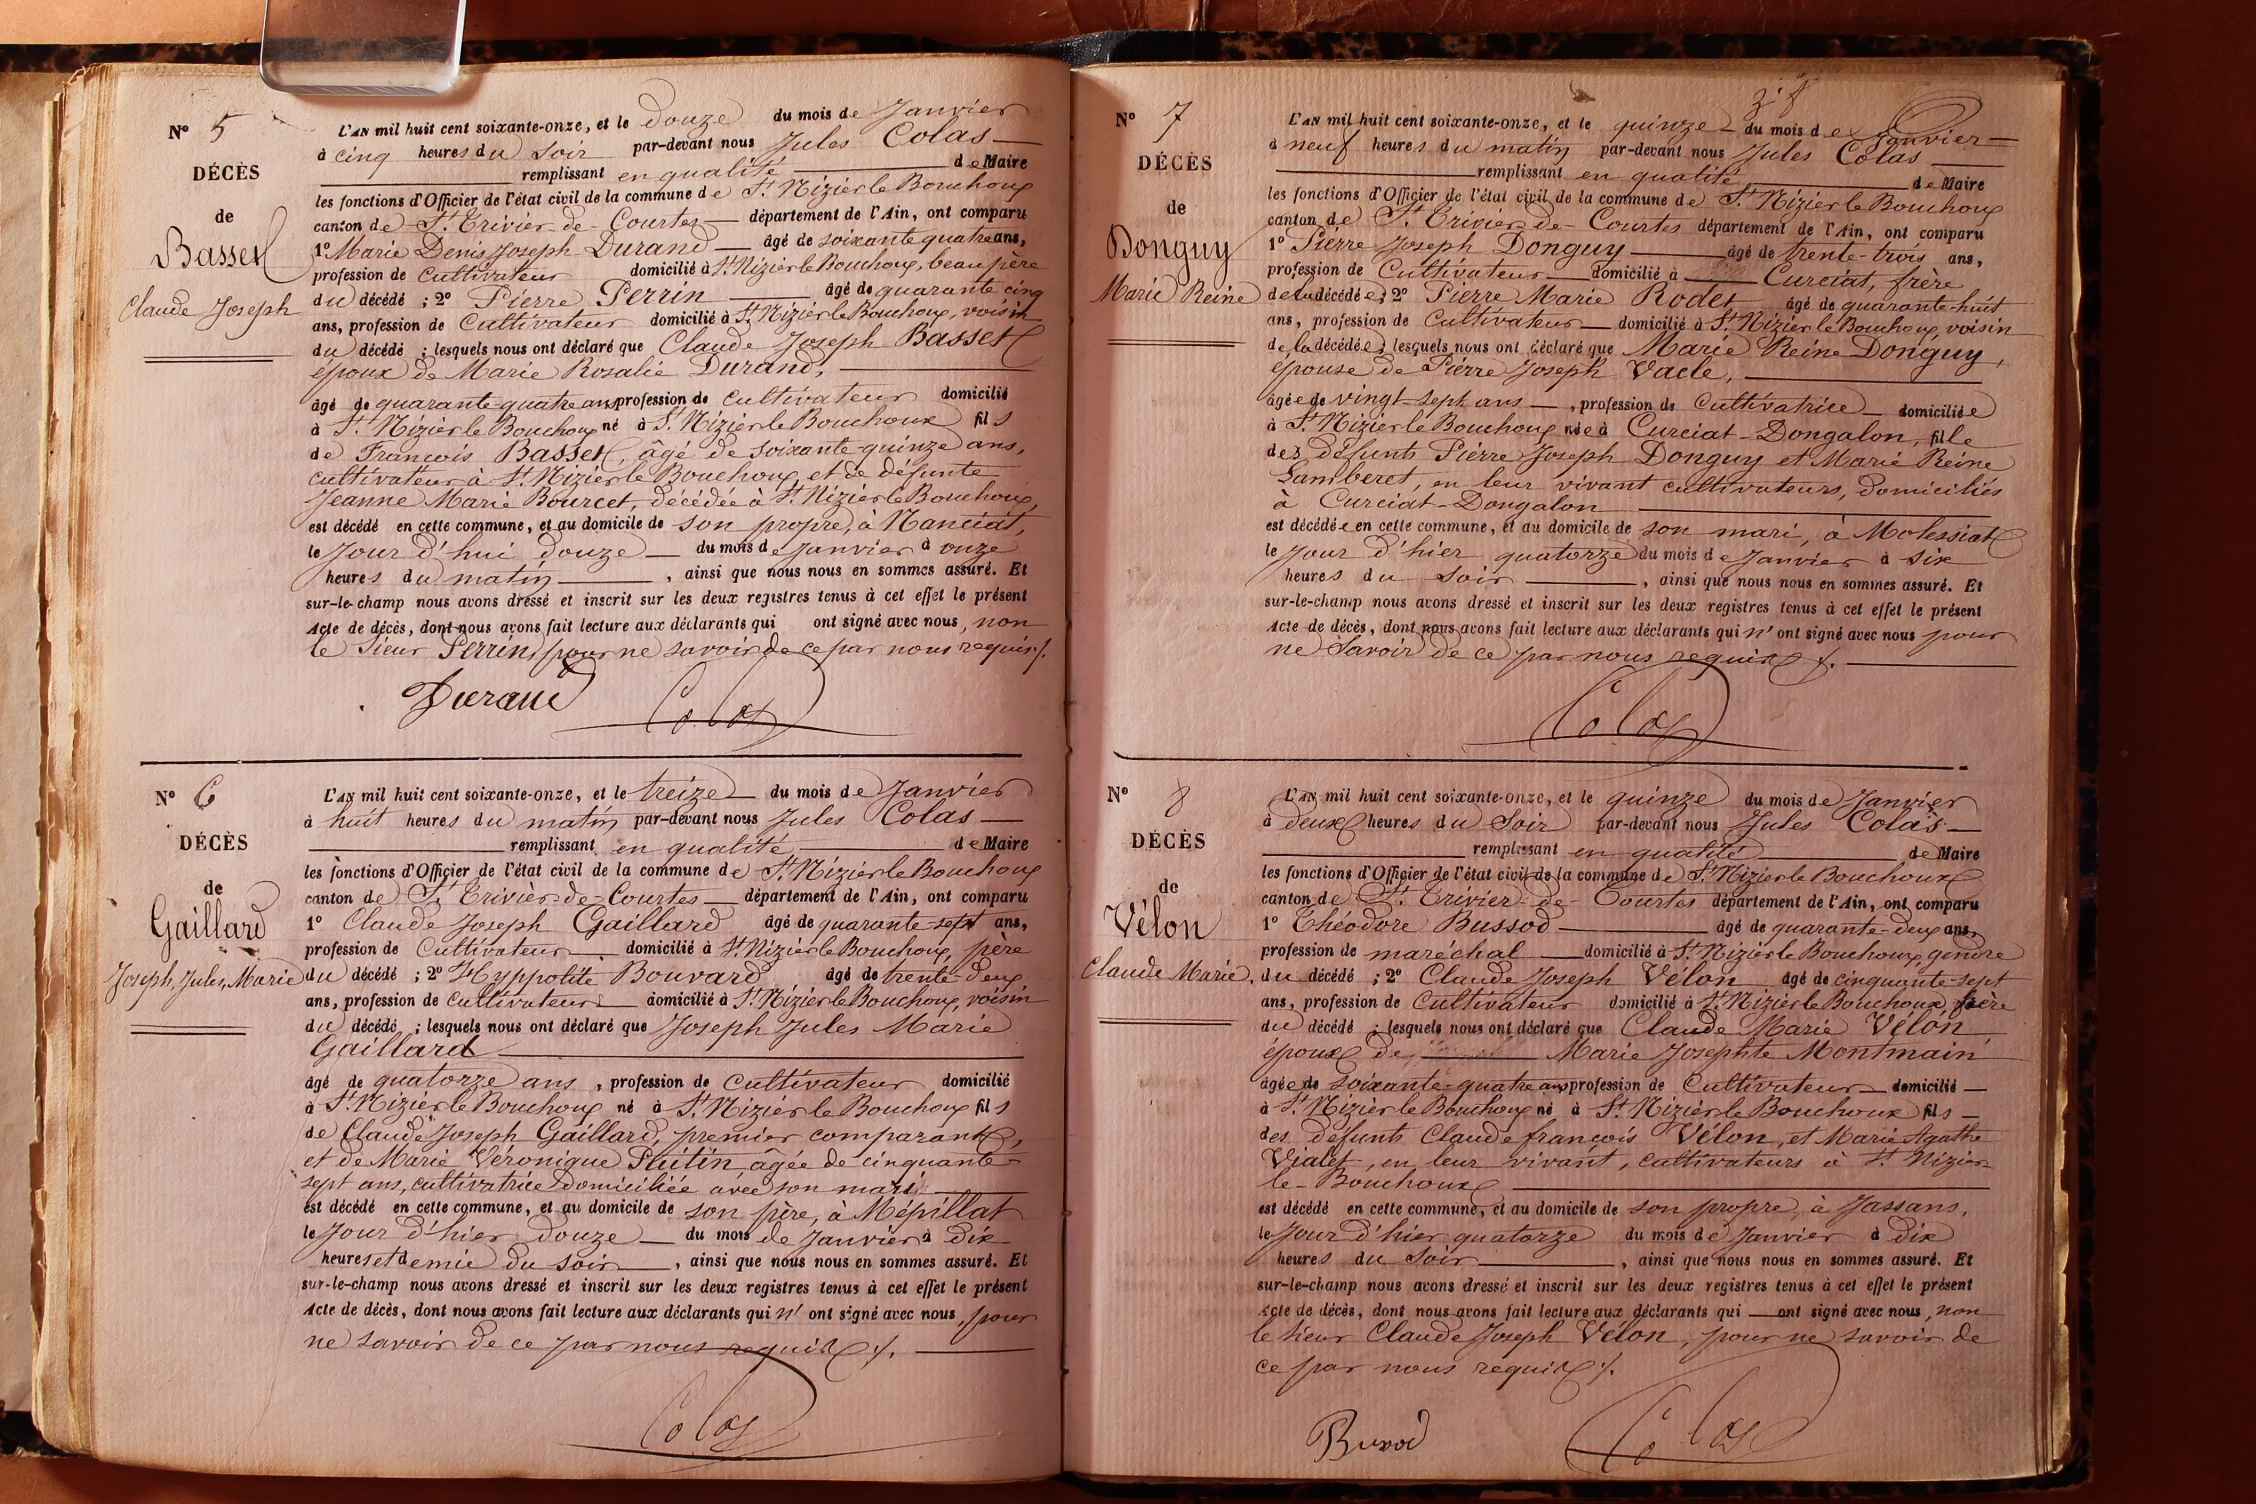 N° 5
DÉCÈS
de
Basset
Claude Joseph
L'AN mil huit cent soixante-onze, et le douze du mois de Janvier
à cinq heures du soir par-devant nous Jules Colas
remplissant en qualité de Maire
les fonctions d'Officier de l'état civil de la commune de St. Nizier le Bouchoux
canton de St. Trivier-de-Courtes département de l'Ain, ont comparu
1° Marie Denis Joseph Durand âgé de soixante quatre ans,
profession de Cultivateur domicilié à St. Nizier le Bouchoux, beau père
du décédé ; 2° Pierre Perrin âgé de quarante cinq
ans, profession de Cultivateur domicilié à St. Nizier le Bouchoux, voisin
du décédé ; lesquels nous ont déclaré que Claude Joseph Basset
époux de Marie Rosalie Durand,
âgé de quarante-quatre ans profession de cultivateur domicilié
à St. Nizier le Bouchoux né à St. Nizier le Bouchoux fils
de François Basset, âgé de soixante-quinze ans,
cultivateur à St. Nizier le Bouchoux et de défunte
Jeanne Marie Bourcet, décédée à St. Nizier le Bouchoux,
est décédé en cette commune, et au domicile de son propre, à Nanciat,
le Jour d'hui douze du mois de Janvier à onze
heures du matin , ainsi que nous nous en sommes assuré. Et
sur-le-champ nous avons dressé et inscrit sur les deux registres tenus à cet effet le présent
Acte de décès, dont nous avons fait lecture aux déclarants qui ont signé avec nous, non
le sieur Perrin, pour ne savoir de ce par nous requis ./.
Durand Colas
N° 6
DÉCÈS
de
Gaillard
Joseph Jules Marie
L'AN mil huit cent soixante-onze, et le treize du mois de Janvier
à huit heures du matin par-devant nous Jules Colas
remplissant en qualité de Maire
les fonctions d'Officier de l'état civil de la commune de St. Nizier le Bouchoux
canton de St. Trivier-de-Courtes département de l'Ain, ont comparu
1° Claude Joseph Gaillard âgé de quarante-sept ans,
profession de Cultivateur domicilié à St. Nizier le Bouchoux, père
du décédé ; 2° Hyppolite Bouvard âgé de trente-deux
ans, profession de Cultivateur domicilié à St. Nizier le Bouchoux, voisin
du décédé ; lesquels nous ont déclaré que Joseph Jules Marie
Gaillard
âgé de quatorze ans , profession de Cultivateur domicilié
à St. Nizier le Bouchoux né à St. Nizier le Bouchoux fils
de Claude Joseph Gaillard, premier comparant,
et de Marie Véronique Putin, âgée de cinquante-
sept ans, cultivatrice domiciliée avec son mari
est décédé en cette commune, et au domicile de son père, à Mépillat
le Jour d'hier douze du mois de Janvier à dix
heures et demie du soir , ainsi que nous nous en sommes assuré. Et
sur-le-champ nous avons dressé et inscrit sur les deux registres tenus à cet effet le présent
Acte de décès, dont nous avons fait lecture aux déclarants qui n'ont signé avec nous, pour
ne savoir de ce par nous requis ./.
Colas
N° 7
DÉCÈS
de
Donguy
Marie Reine
L'AN mil huit cent soixante-onze, et le quinze du mois de Janvier
à neuf heures du matin par-devant nous Jules Colas
remplissant en qualité de Maire
les fonctions d'Officier de l'état civil de la commune de St. Nizier le Bouchoux
canton de St. Trivier-de-Courtes département de l'Ain, ont comparu
1° Pierre Joseph Donguy âgé de trente-trois ans,
profession de Cultivateur domicilié à Curciat, frère
de la décédée ; 2° Pierre Marie Rodet âgé de quarante-huit
ans, profession de Cultivateur domicilié à St. Nizier le Bouchoux voisin
de la décédée ; lesquels nous ont déclaré que Marie Reine Donguy,
épouse de Pierre Joseph Vacle,
âgée de vingt-sept ans , profession de Cultivatrice domiciliée
à St. Nizier le Bouchoux née à Curciat-Dongalon, fille
des défunts Pierre Joseph Donguy et Marie Reine
Lamberet, en leur vivant cultivateurs, domiciliés
à Curciat-Dongalon
est décédée en cette commune, et au domicile de son mari, à Molessiat
le Jour d'hier quatorze du mois de Janvier à six
heures du soir , ainsi que nous nous en sommes assuré. Et
sur-le-champ nous avons dressé et inscrit sur les deux registres tenus à cet effet le présent
Acte de décès, dont nous avons fait lecture aux déclarants qui n'ont signé avec nous pour
ne savoir de ce par nous requis ./.
Colas
N° 8
DÉCÈS
de
Vélon
Claude Marie.
L'AN mil huit cent soixante-onze, et le quinze du mois de Janvier
à deux heures du Soir par-devant nous Jules Colas
remplissant en qualité de Maire
les fonctions d'Officier de l'état civil de la commune de St. Nizier le Bouchoux
canton de St. Trivier-de-Courtes département de l'Ain, ont comparu
1° Théodore Bussod âgé de quarante-deux ans,
profession de maréchal domicilié à St. Nizier le Bouchoux, gendre
du décédé ; 2° Claude Joseph Vélon âgé de cinquante-sept
ans, profession de Cultivateur domicilié à St. Nizier le Bouchoux frère
du décédé ; lesquels nous ont déclaré que Claude Marie Vélon
époux de Marie Josephte Montmain
âgé de soixante-quatre ans profession de Cultivateur domicilié
à St. Nizier le Bouchoux né à St. Nizier le Bouchoux fils
des défunts Claude françois Vélon, et Marie Agathe
Vialet, en leur vivant, cultivateurs à St. Nizier-
le-Bouchoux
est décédé en cette commune, et au domicile de son propre, à Jassans,
le Jour d'hier quatorze du mois de Janvier à dix
heures du soir , ainsi que nous nous en sommes assuré. Et
sur-le-champ nous avons dressé et inscrit sur les deux registres tenus à cet effet le présent
Acte de décès, dont nous avons fait lecture aux déclarants qui ont signé avec nous, non
le sieur Claude Joseph Vélon, pour ne savoir de
ce par nous requis ./.
Colas